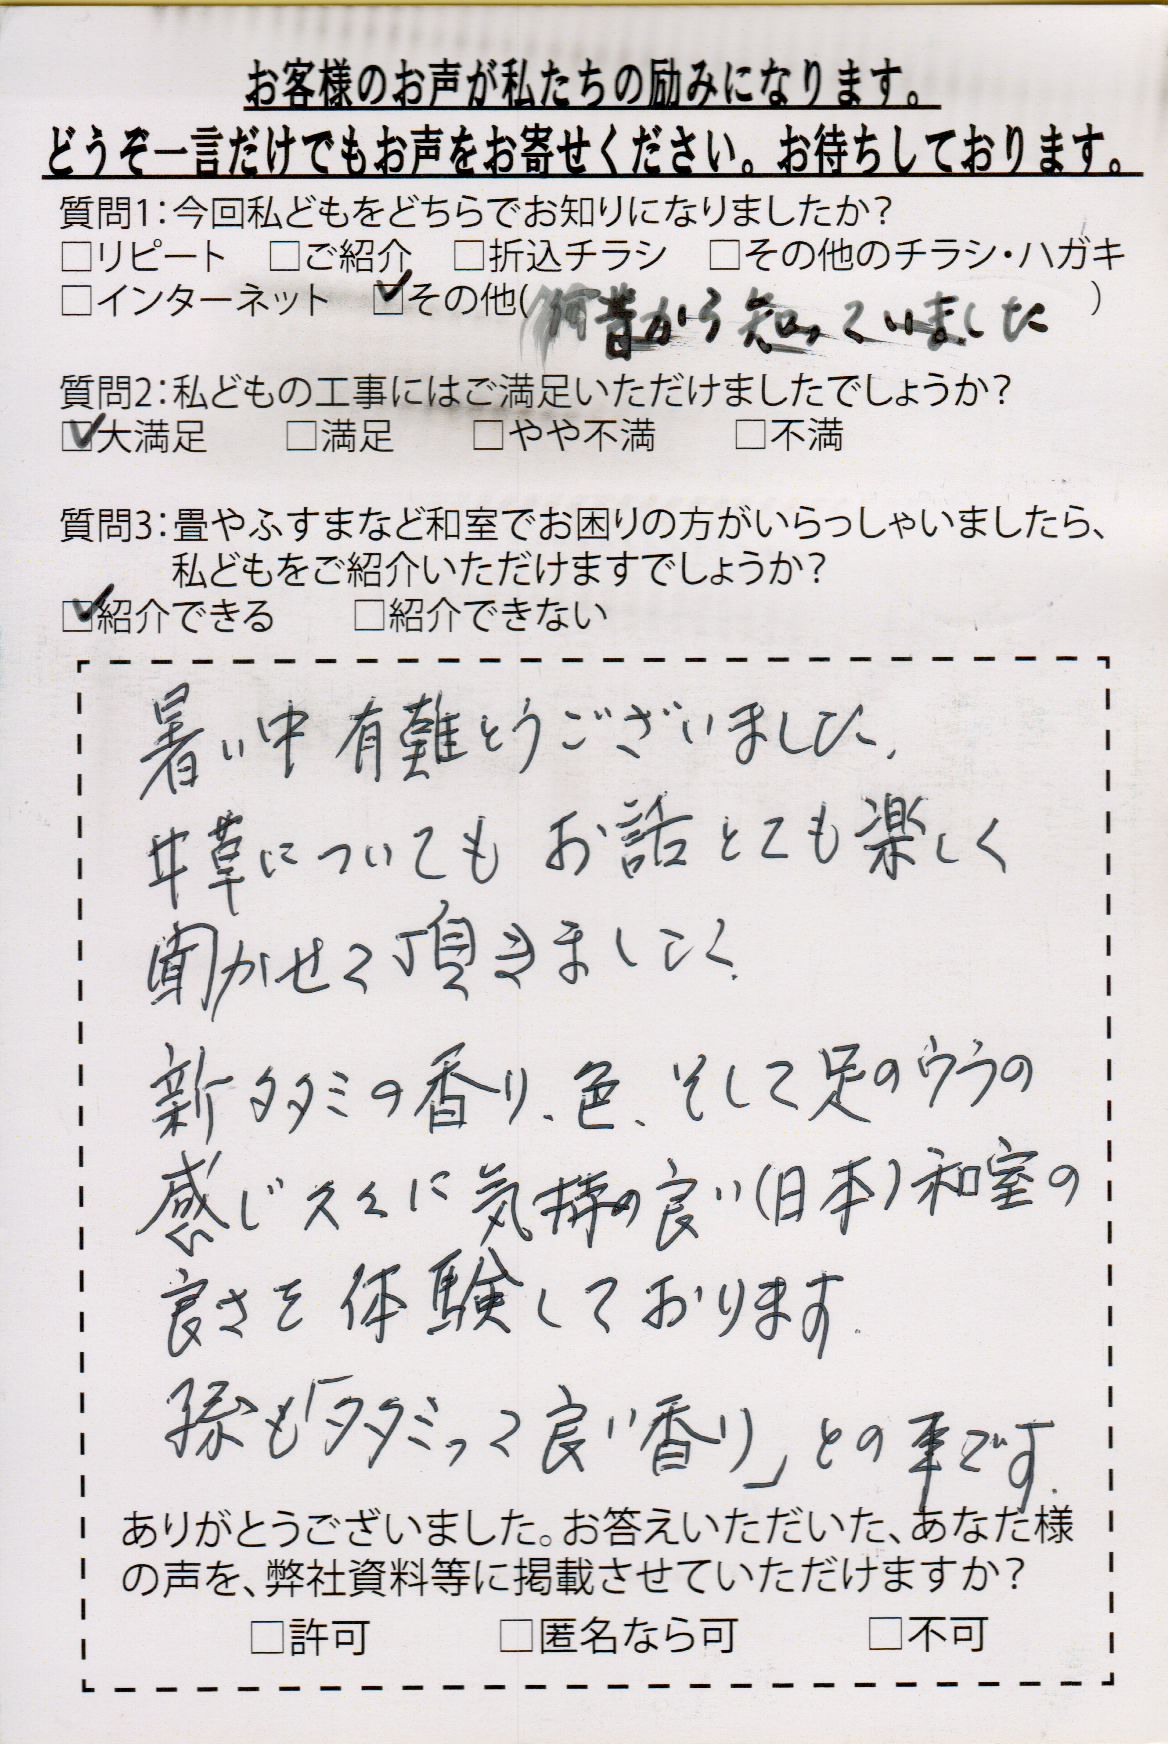 お客様のお声が私たちの励みになります。
どうぞ一言だけでもお声をお寄せください。お待ちしております。
質問1:今回私どもをどちらでお知りになりましたか?
□リピート □ご紹介 □折込チラシ □その他のチラシ・ハガキ
□インターネット ☑その他( 昔から知っていました )
質問2:私どもの工事にはご満足いただけましたでしょうか?
☑大満足 □満足 □やや不満 □不満
質問3:畳やふすまなど和室でお困りの方がいらっしゃいましたら、
私どもをご紹介いただけますでしょうか?
☑紹介できる □紹介できない
暑い中有難とうございました。
井草についてもお話とても楽しく
聞かせて頂きました。
新タタミの香り、色、そして足のウラの
感じ久々に気持の良い(日本)和室の
良さを体験しております。
孫も「タタミって良い香り」との事です。
ありがとうございました。お答えいただいた、あなた様
の声を、弊社資料等に掲載させていただけますか?
□許可 □匿名なら可 □不可